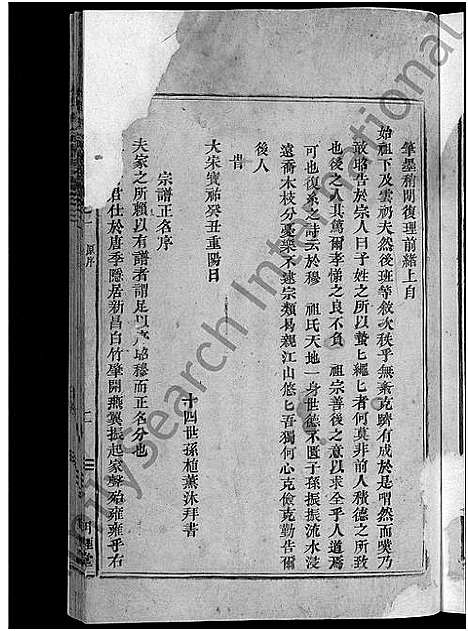 筆墨稍閒復理前緒上自
始祖下及雲礽夫然後班等敘次秩乎無紊克躋有成於是喟然而嘆乃
敢昭告於宗人曰子姓之所以蟄乚繩乚者何莫非前人積德之所致
也後之人其篤爾孝悌之良不負　祖宗善後之意以求全乎人道焉
可也復系之詩云於穆　祖氏天地一身世德不匱子孫振振流水浸
遠喬木枝分憂樂不逮宗類易親江山悠乚吾獨何心克儉克勤告爾
後人
旹
大宋寶祐癸丑重陽日
十四世孫植薰沐拜書
宗譜正名序
夫家之所賴以有譜者謂足以序昭穆而正名分也
君仕於唐季隱居新昌白竹肇開燕翼振起家聲殆雍雍乎右
原序
二